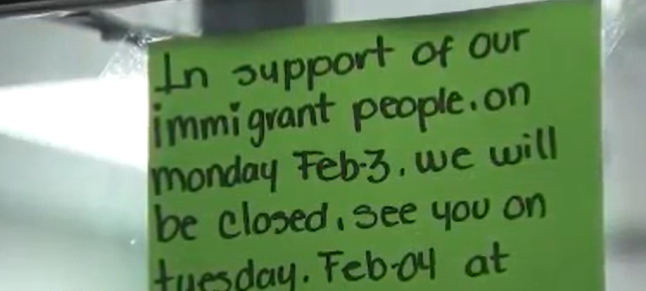 In support of our
immigrant people. on
monday Feb-3. we will
be closed. see you on
tuesday. Feb-04 at